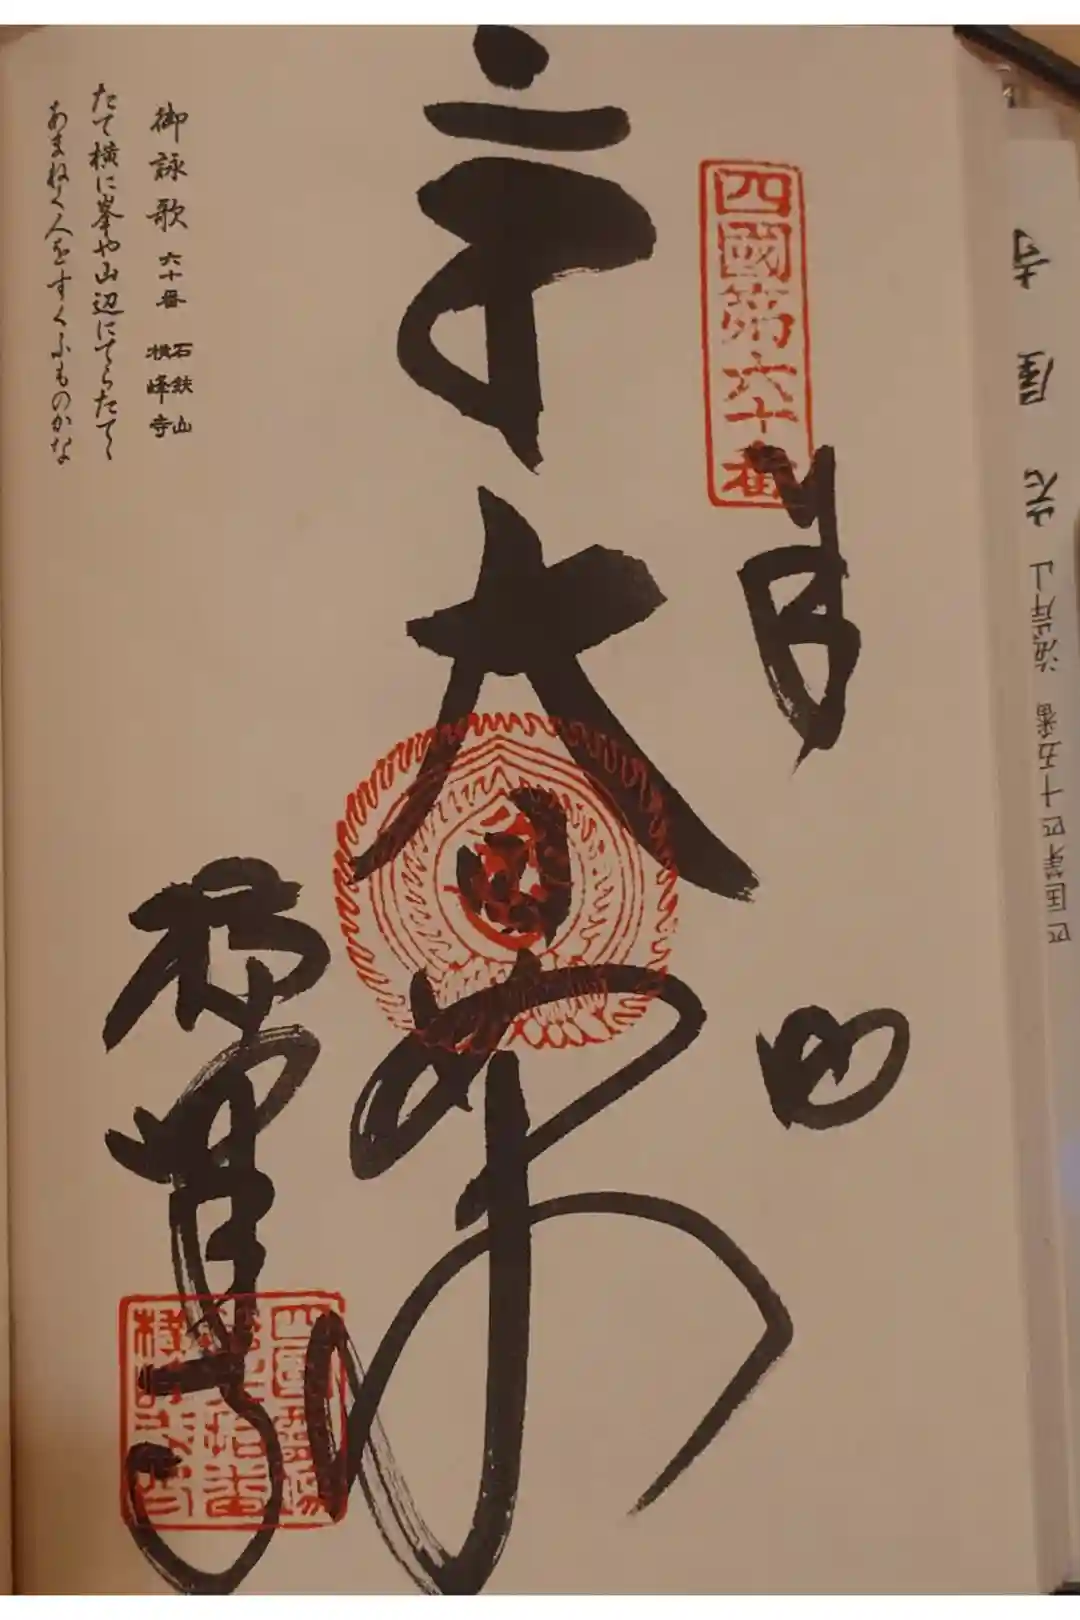 四国第四十五番 海岸山 岩屋寺
四國第六十番
大日如来
横峰寺
御詠歌 六十番 石鈇山 横峰寺
たて横に峯や山辺にてらたてゝ
あまねく人をすくふものかな